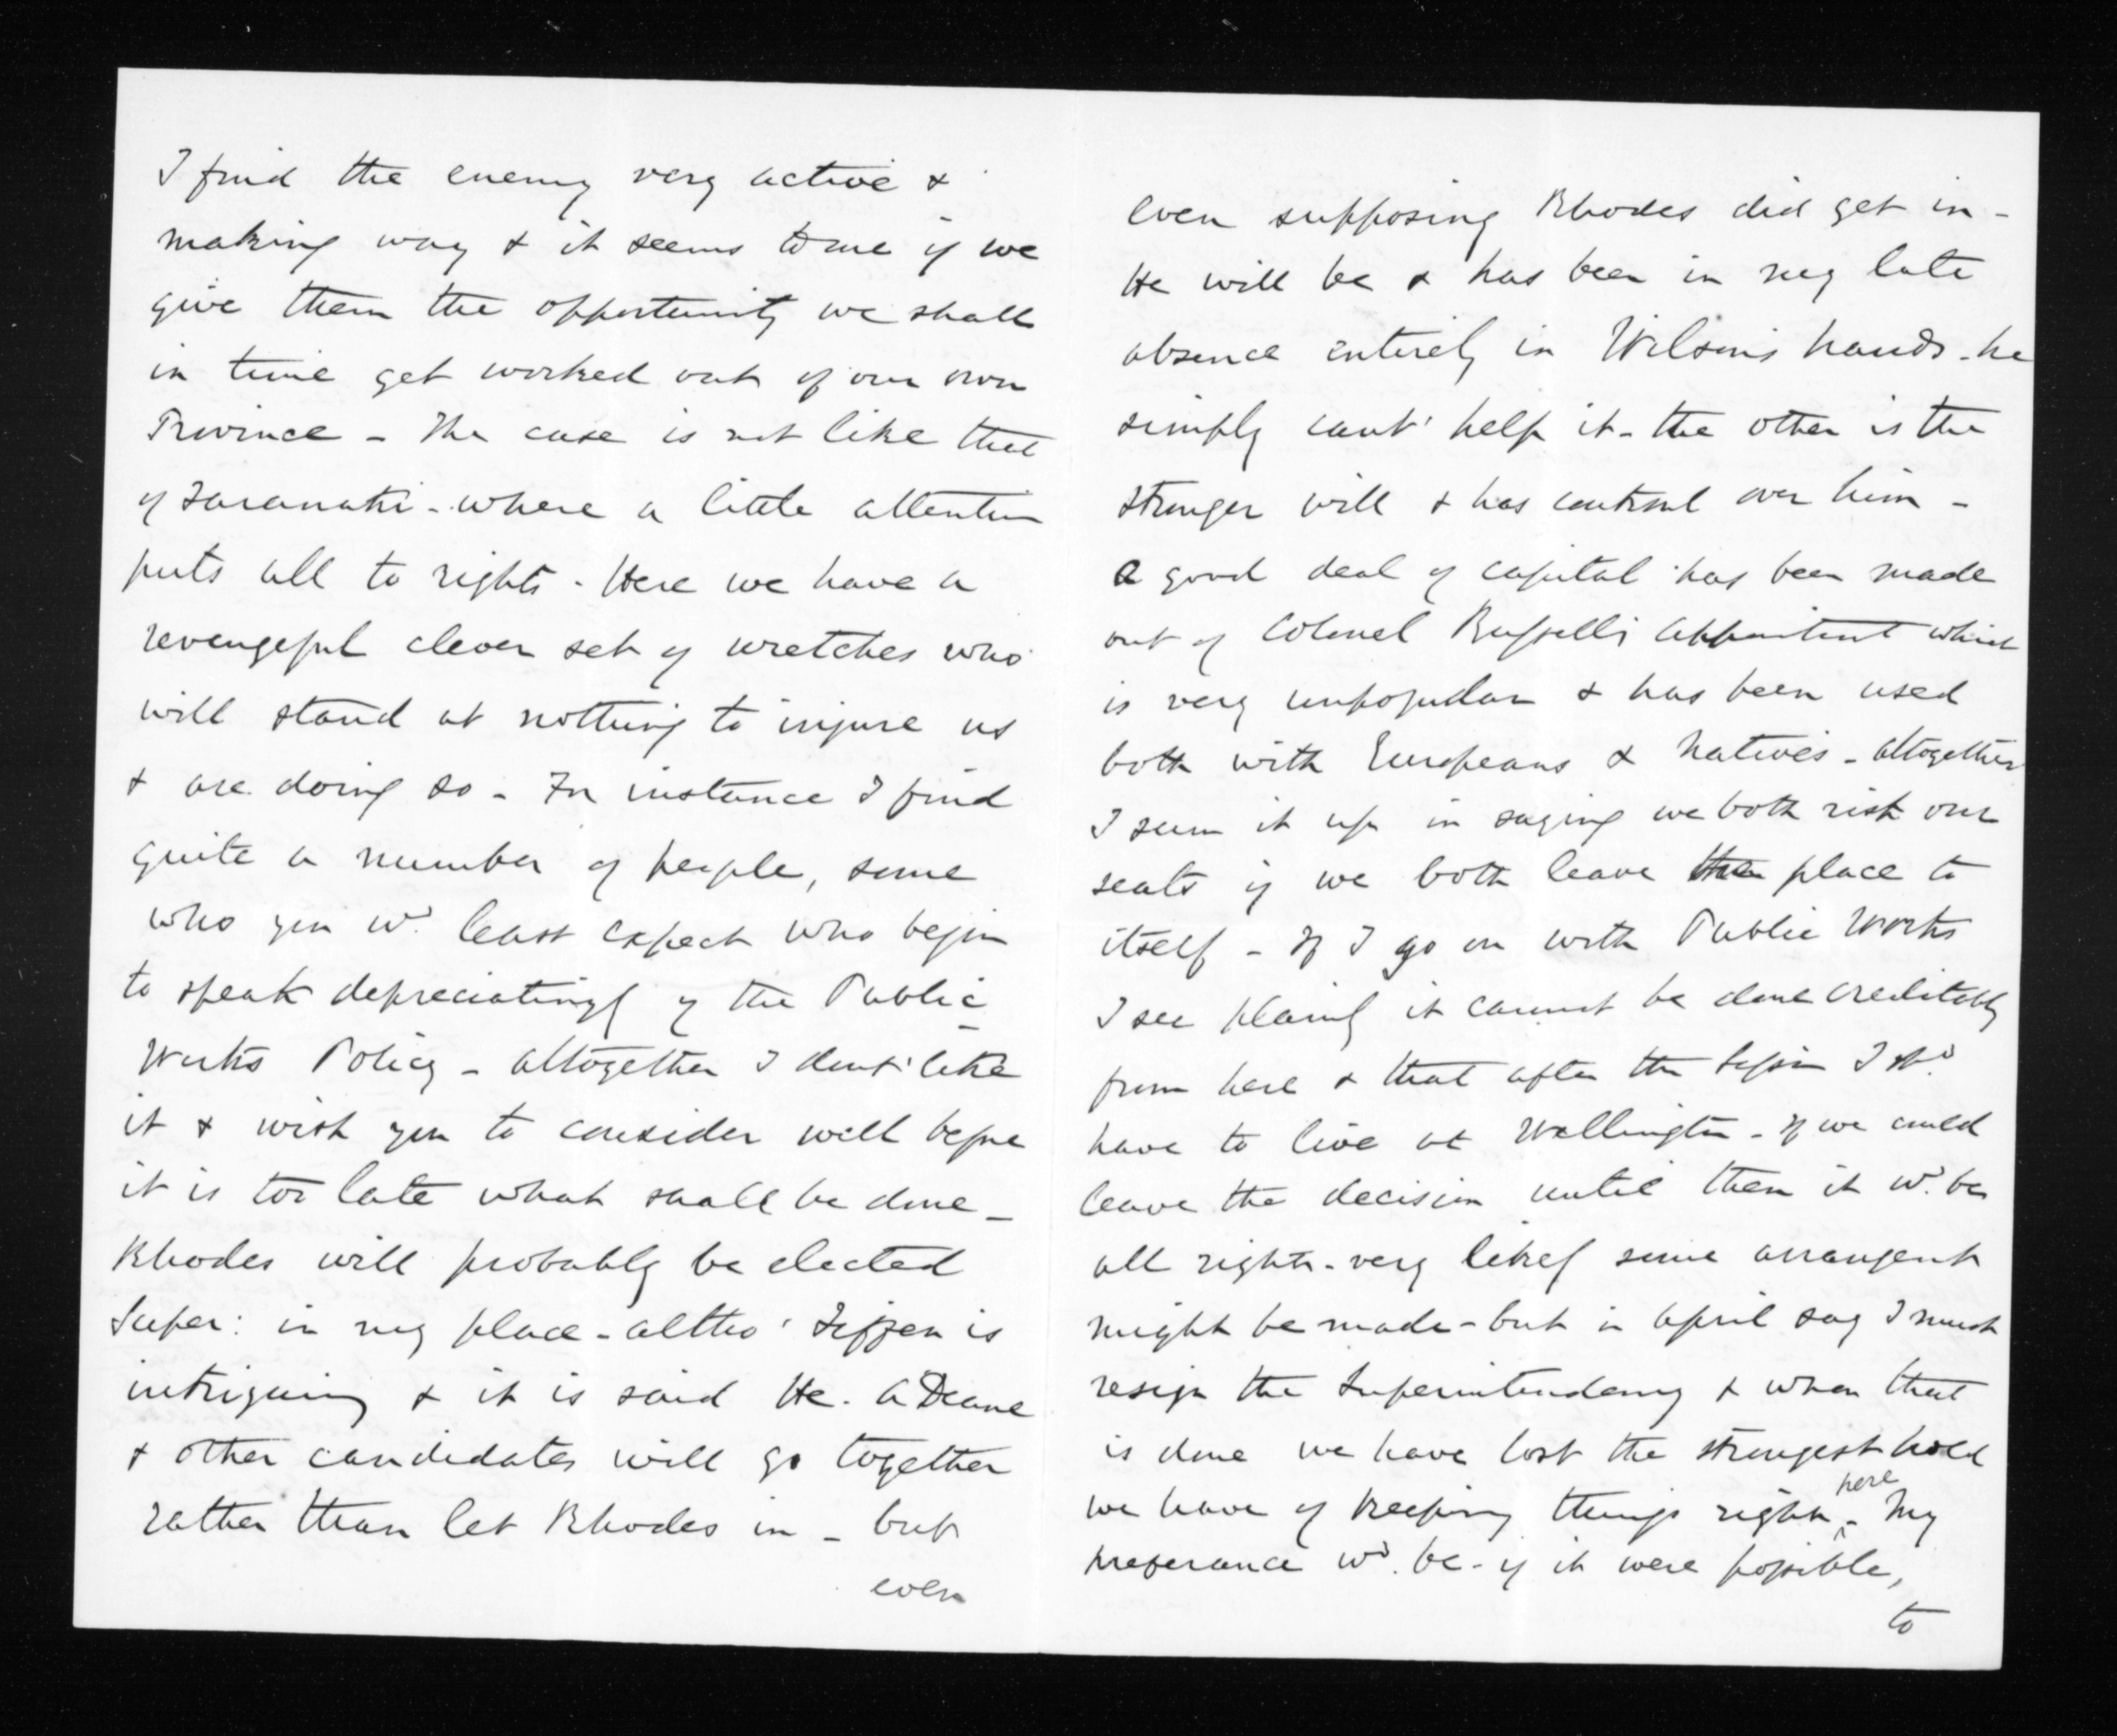 I find the enemy very active &
making way & it seems to me if we
give them the opportunity we shall
in time get worked out of our own
Province - The case is not like that
of Taranaki - where a little attention
puts all to rights - Here we have a
revengeful clever set of wretches who
will stand at nothing to injure us
& are doing so - For instance I find
quite a number of people, some
who you wd. least expect who begin
to speak depreciatingly of the Public
Works Policy - altogether I dont' like
it & wish you to consider well before
it is too late what shall be done -
Rhodes will probably be elected
Super: in my place - altho' Tiffen is
intriguing & it is said He. A Deane
& other candidates will go together
rather than let Rhodes in - but
even
even supposing Rhodes did get in -
He will be & has been in my late
absence entirely in Wilson's hands - he
simply cant' help it - the other is the
stronger will & has control over him -
a good deal of capital has been made
out of Colonel Russell's appointent which
is very unpopular & has been used
both with Europeans & Natives - altogether
I sum it up in saying we both risk our
seats if we both leave the place to
itself - If I go on with Public Works
I see plainly it cannot be done creditably
from here & that after the Session I shd.
have to live at Wellington - if we could
leave the decision until then it wd. be
all right - very likely some arrangent
might be made - but in April say I must
resign the Superintendency & when that
is done we have lost the strongest hold
we have of keeping things right here - My
preferance wd. be - if it were possible,
to